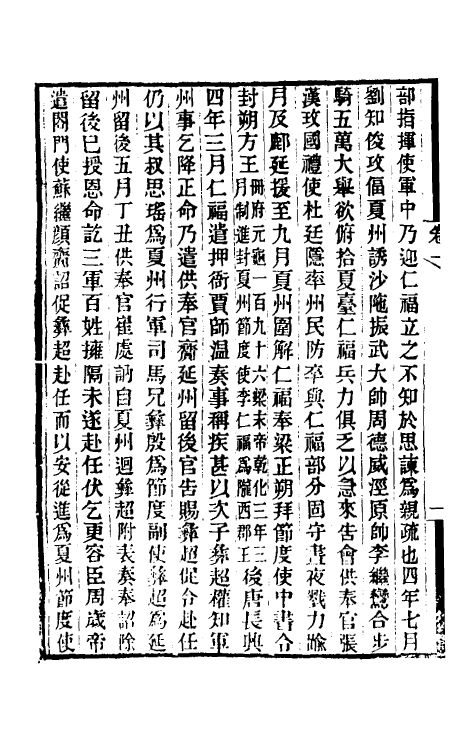 部指揮使軍中乃迎仁福立之不知於思諫爲親疏也四年七月
劉知俊攻偪夏州誘沙陁振武大帥周德威涇原帥李繼鸞合步
騎五萬大舉欲俯拾夏臺仁福兵力俱乏以急來告會供奉官張
漢玫國禮使杜廷隱率州民防卒與仁福部分固守晝夜戮力踰
月及鄜延援至九月夏州圍解仁福奉梁正朔拜節度使中書令
封朔方王冊府元龜一百九十六梁末帝乾化三年三月制進封夏州節度使李仁福爲隴西郡王後唐長興
四年三月仁福遣押衙賈師溫奏事稱疾甚以次子彜超權知軍
州事乞降正命乃遣供奉官齎延州留後官告賜彜超促令赴任
仍以其叔思瑤爲夏州行軍司馬兄彜殷爲節度副使彜超爲延
州留後五月丁丑供奉官崔處訥自夏州迴彜超附表奏奉詔除
留後已授恩命訖三軍百姓擁隔未遂赴任伏乞更容臣周歲帝
遣閤門使蘇繼顔齎詔促彜超赴任而以安從進爲夏州節度使
卷一
一